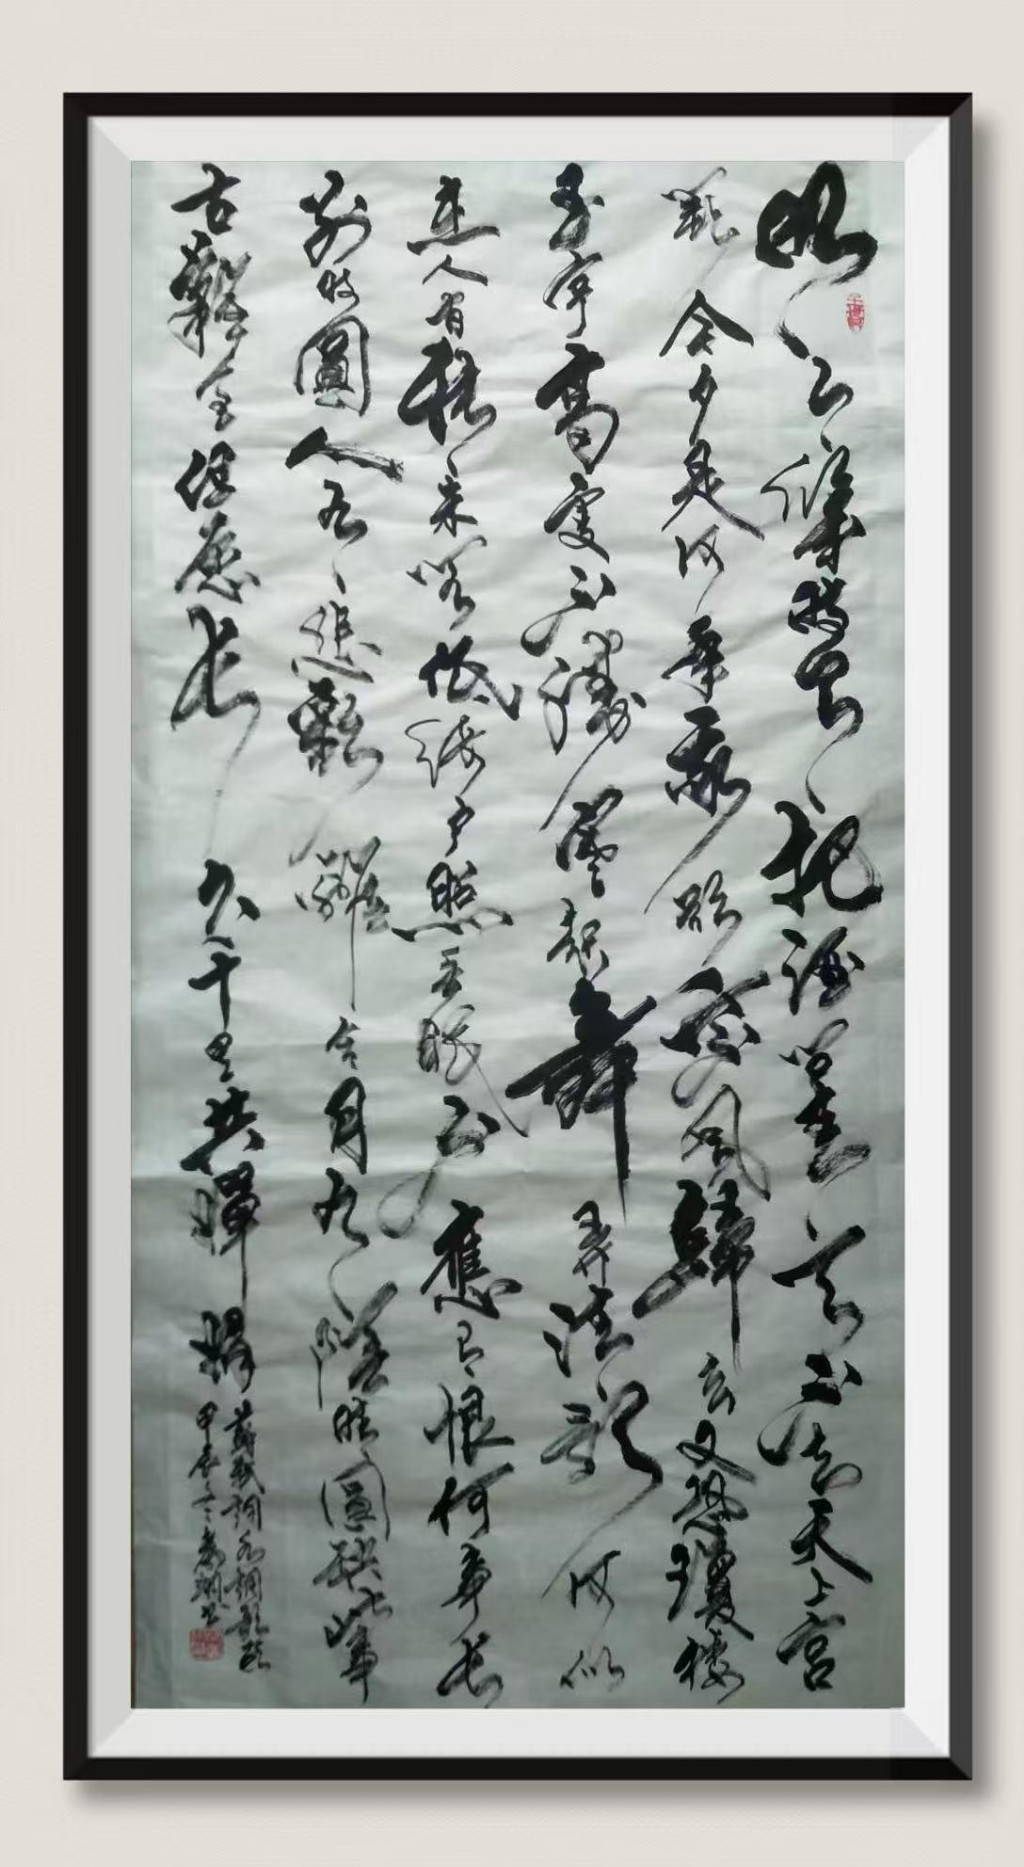 明月幾時有把酒問青天不知天上宮
闕今夕是何年我欲乘風歸去又恐瓊樓
玉宇高處不勝寒起舞弄清影何似
在人間轉朱閣低綺戶照無眠不應有恨何事長
別時圓人有悲歡離合月有陰晴圓缺此事
古難全但願長久千里共嬋娟
蘇軾詞水調歌頭
甲辰書